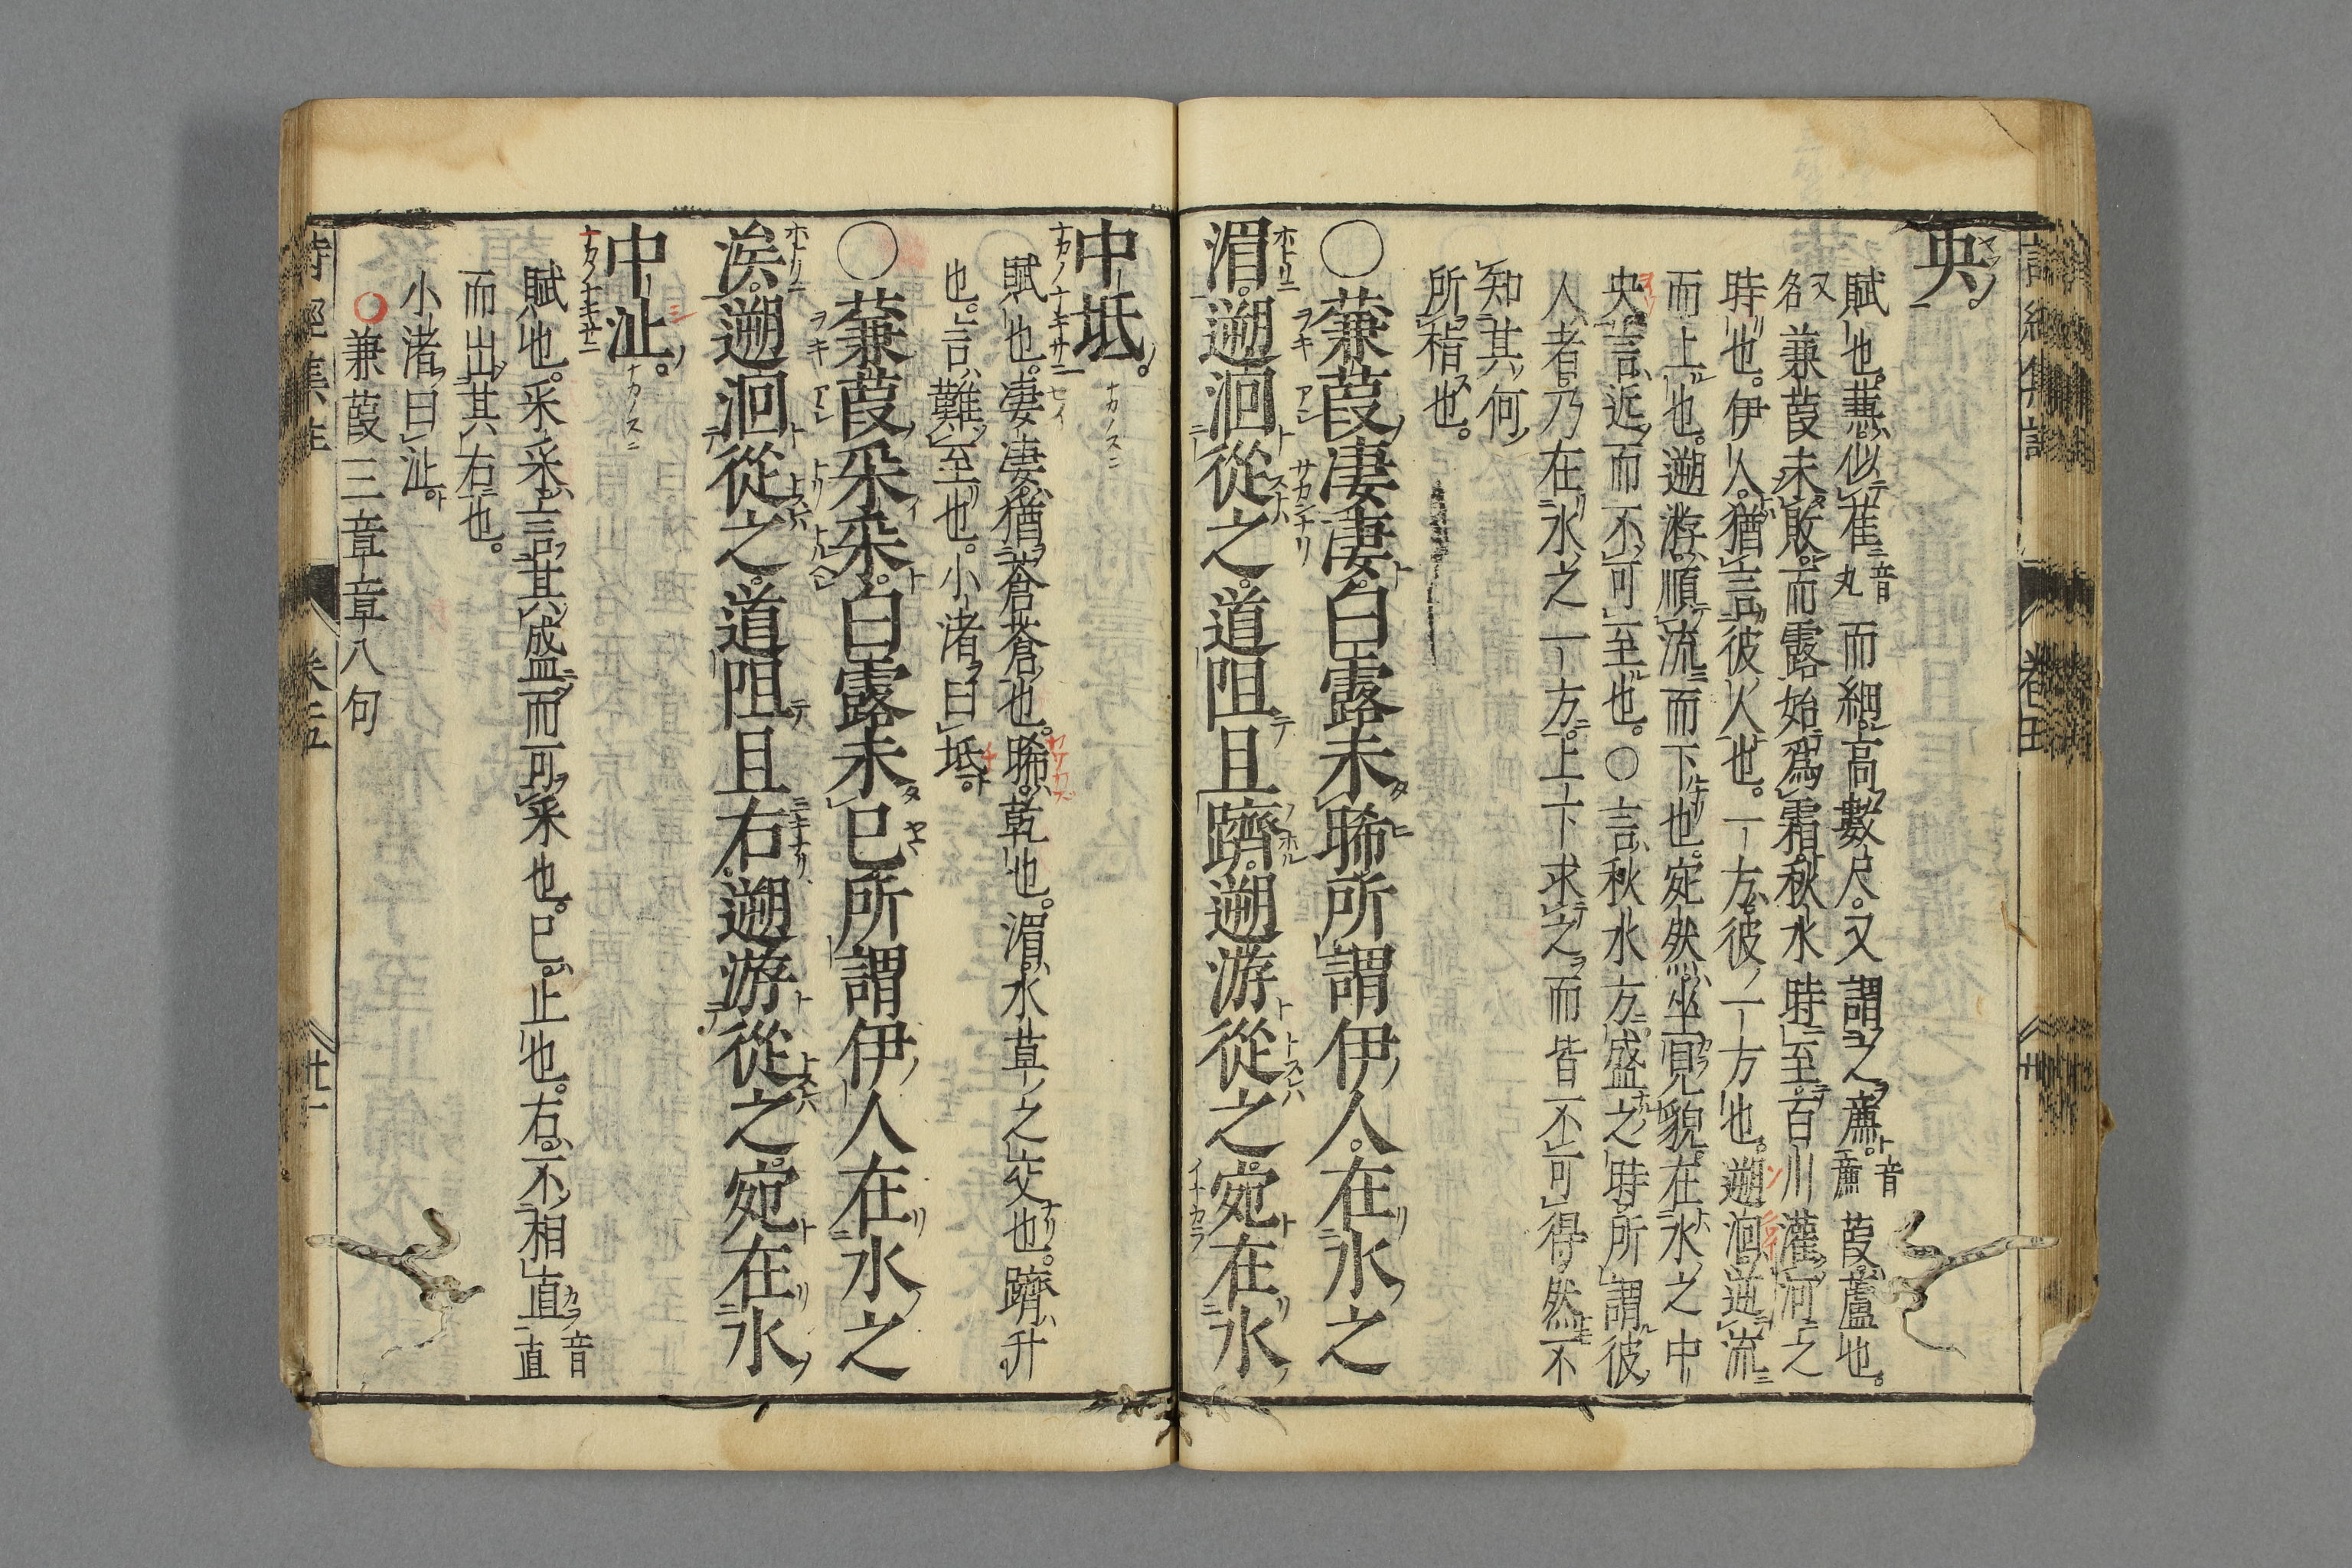 央
賦也。蒹似萑音丸而細。高數尺。又謂之薕。音薕葭蘆也。
又名蒹葭未敗。而露始爲霜。秋水時至。百川灌河之
時也。伊人。猶言彼人也。一方。彼一方也。遡洄。逆流
而上也。遡游。順流而下也。宛然。坐見貌。在水之中
央。言近而不可至也。○言秋水方盛之時。所謂彼
人者。乃在水之一方。上下求之。而皆不可得。然不
知其何
所稭也。
○蒹葭凄凄。白露未晞。所謂伊人。在水之
湄。遡洄從之。道阻且躋。遡游從之。宛在水
中坻。
賦也。凄凄。猶蒼蒼也。晞。乾也。湄。水草之交也。躋。升
也。言難至也。小渚曰坻。
○蒹葭采采。白露未已。所謂伊人在水之
涘。遡洄從之。道阻且右。遡游從之。宛在水
中沚。
賦也。采采。言其盛而可采也。已。止也。右。不相直音直
而出其右也。
小渚曰沚。
○兼葭三章章八句
詩經集註
卷五
卄一